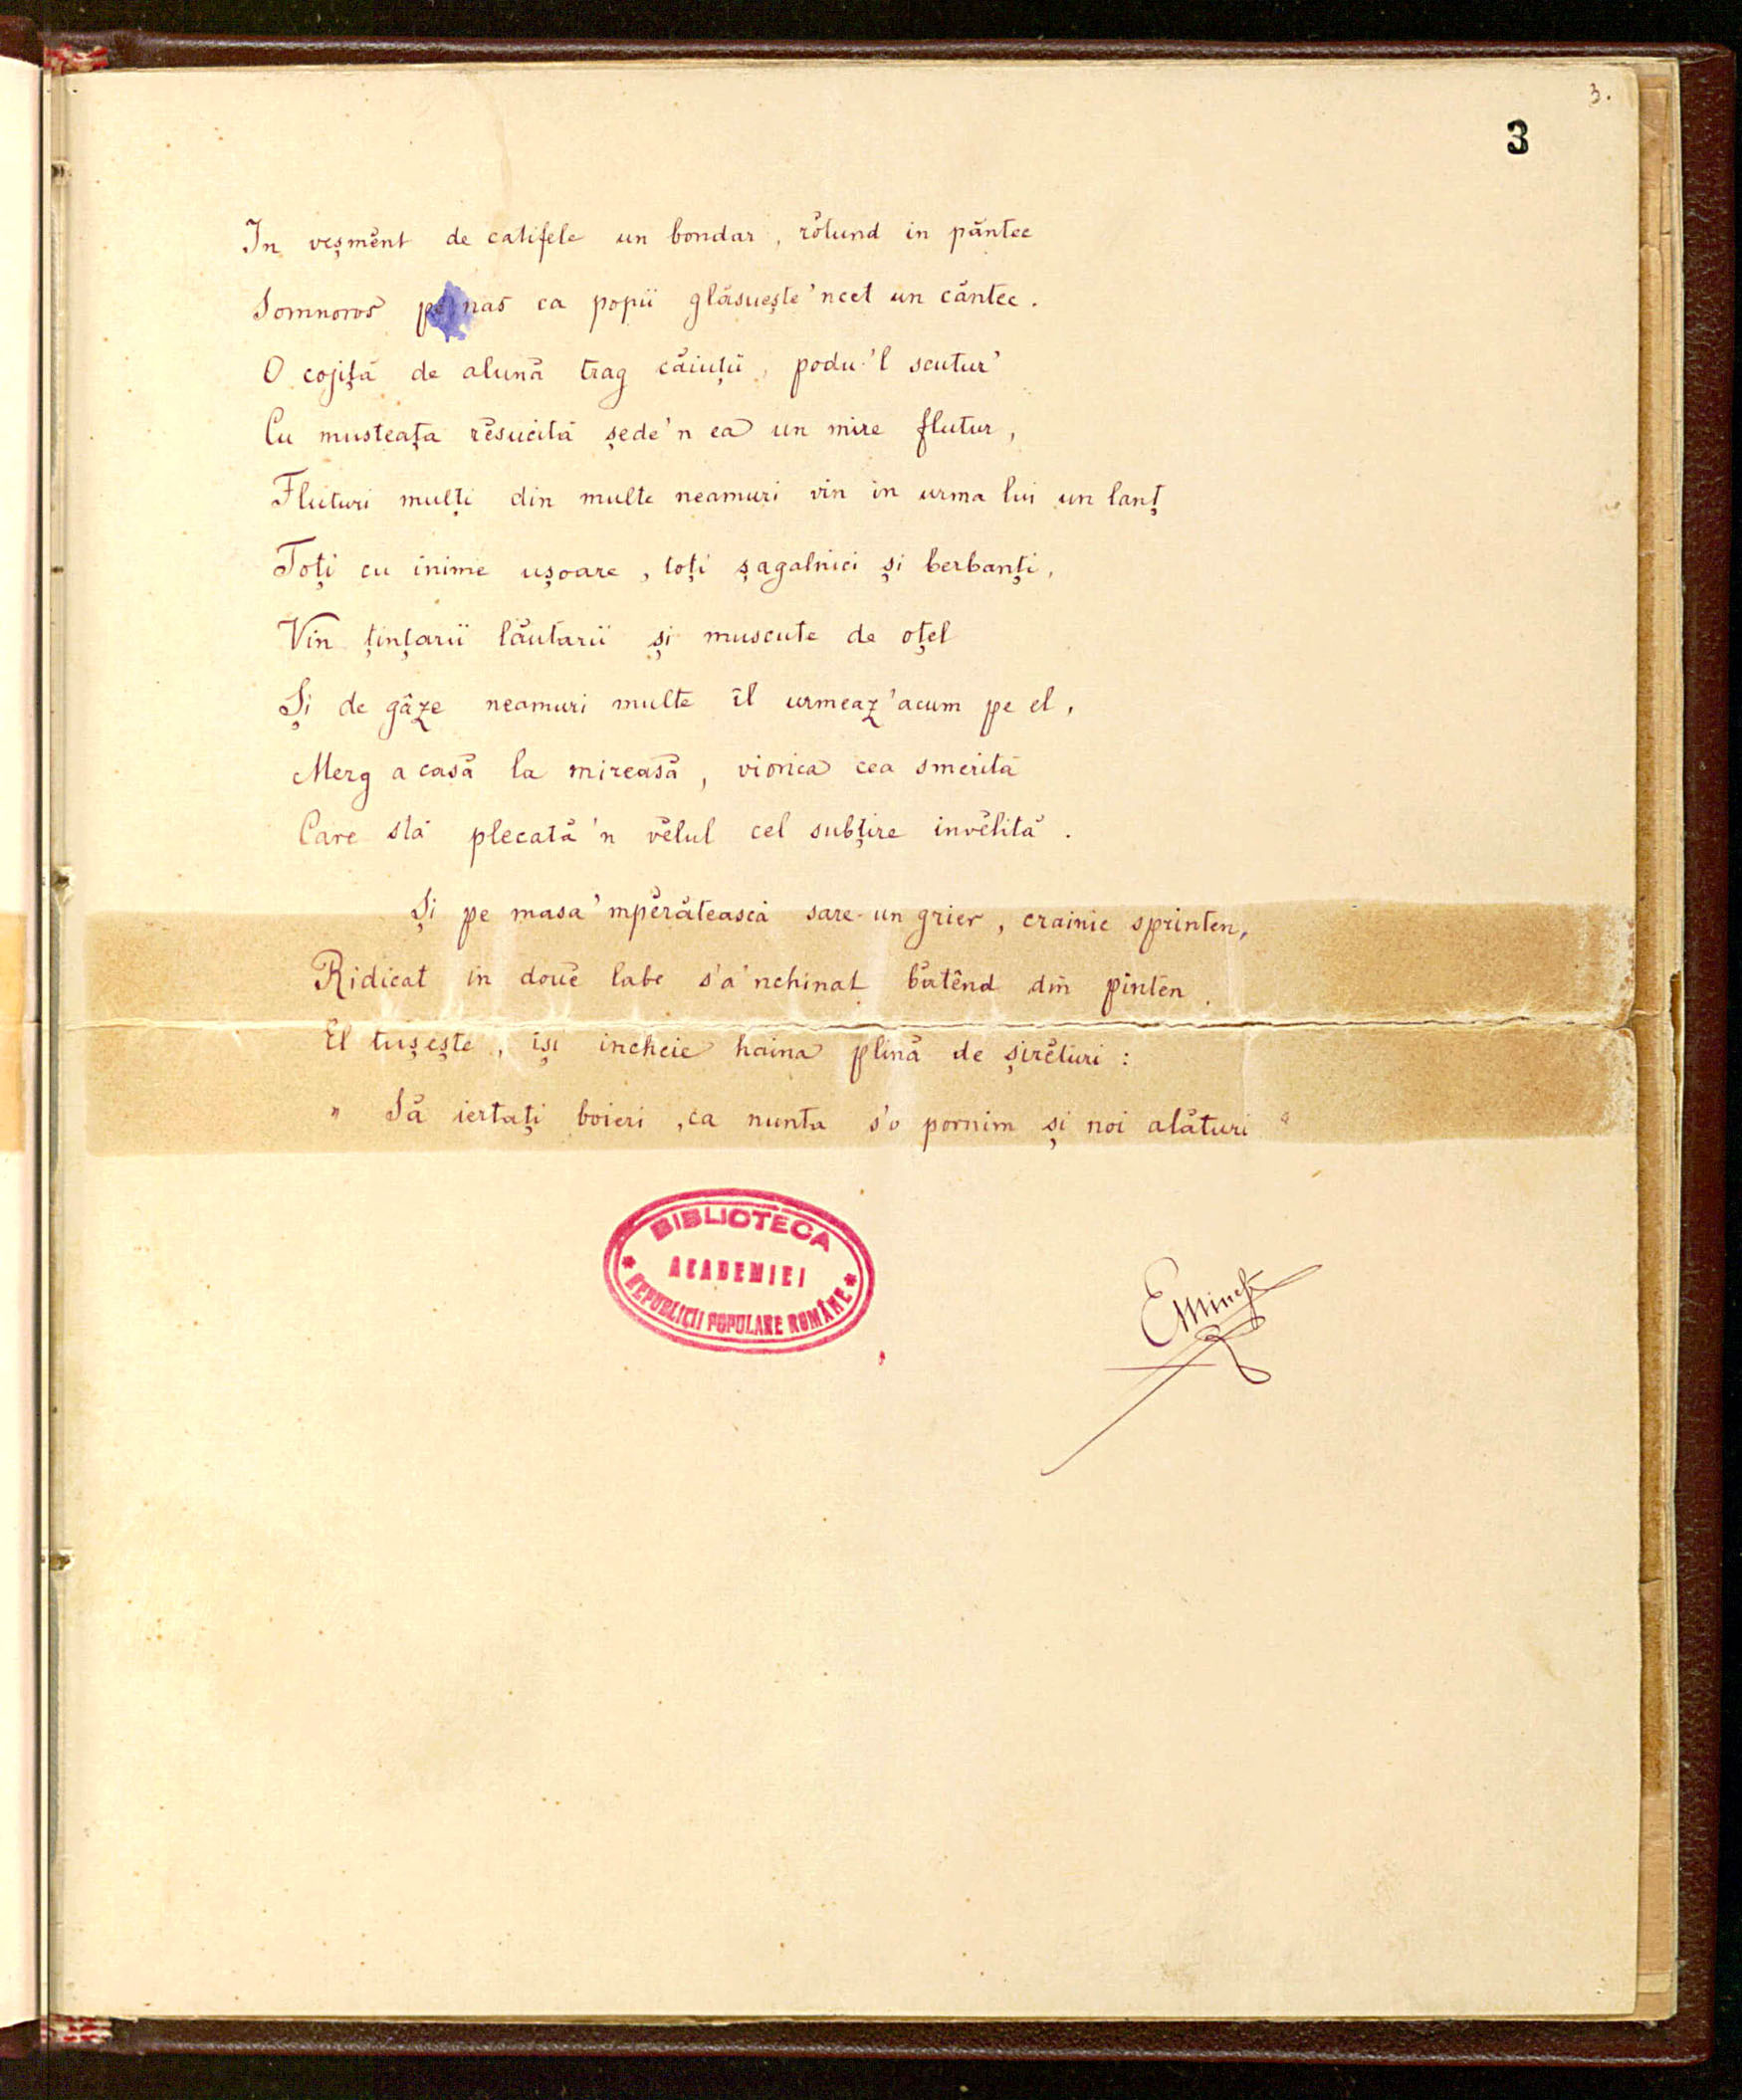 3.
3
In veșmĕnt de catifele un bondar, rŏtund in păntec
Somnoros pe nas ca popii glăsuește'ncet un căntec.
O cojiță de alună trag căiuții, podu-'l scutur'
Cu musteața rĕsucită șede'n ea un mire flutur,
Fluturi mulți din multe neamuri vin in urma lui un lanț
Toți cu inime ușoare, toți șagalnici și berbanți,
Vin țințarii lăutarii și muscute de oțel
Și de gâze neamuri multe îl urmeaz'acum pe el,
Merg a casă la mireasă, viorica cea smerită
Care stă plecată'n vĕlul cel subțire invĕlită.
Și pe masa'mpĕrătească sare un grier, crainic sprinten,
Ridicat in douĕ labe s'a'nchinat bătênd din pinten.
El tușește, iși incheie haina plină de șirĕturi:
„Să iertați boieri, ca nunta s'o pornim și noi alături"
BIBLIOTECA
ACADEMIEI
REPUBLICII POPULARE ROMÂNE